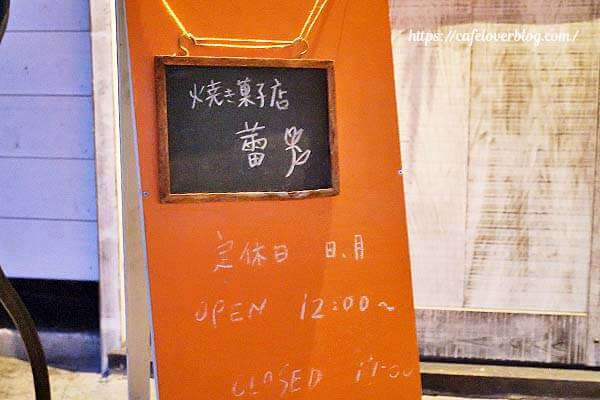 https://cafeloverblog.com/
焼き菓子店
蕾
定休日 日、月
OPEN 12:00~
CLOSED